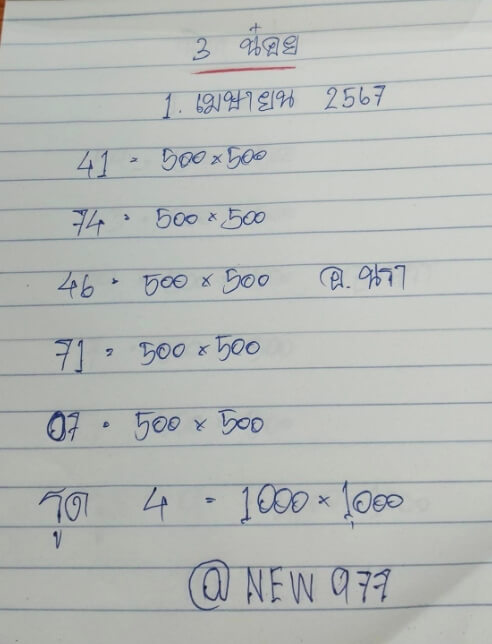 3 น่อย
1. เมษายน 2567
41 = 500 × 500
74 = 500 × 500
46 = 500 × 500 อ. นรา
71 = 500 × 500
07 = 500 × 500
รูด 4 = 1000 × 1000
@ NEW 977